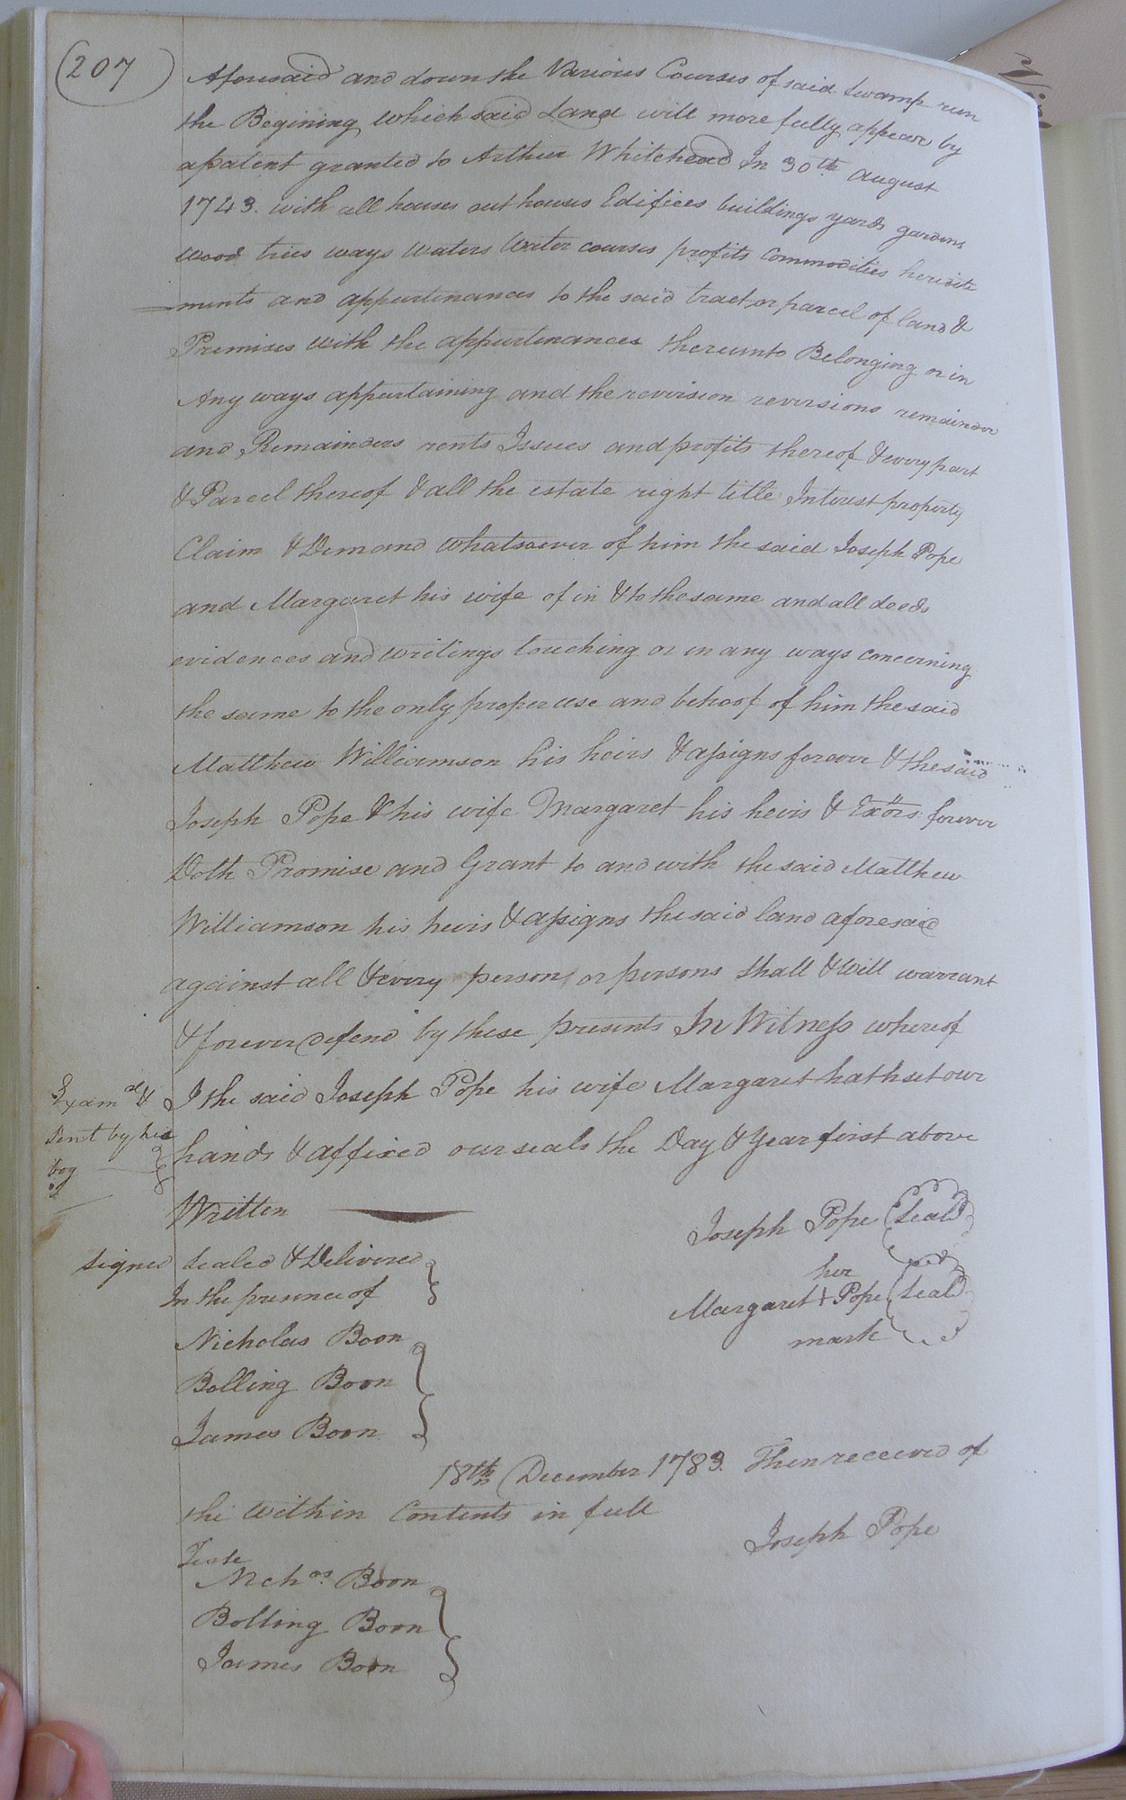 207
Aforesaid and down the Various Courses of said Swamp run
the Begining which said Land will more fully appear by
a patent granted to Arthur Whitehead In 30th August
1743. with all houses out houses Edifices buildings yards gardens
wood trees ways waters Water courses profits Commodities heredita
ments and appurtinances to the said tract or parcel of land &
Premises with the appurtinances thereunto Belonging or in
Any ways appurtaining and the revirsion revirsions remainder
and Remainders rents Issues and profits thereof & every part
& Parcel thereof & all the estate right title Interest property
Claim & Demand whatsoever of him the said Joseph Pope
and Margaret his wife of in & to the same and all deeds
evidences and writings touching or in any ways concerning
the same to the only proper use and behoof of him the said
Matthew Williamson his heirs & assigns forever & the said
Joseph Pope & his wife Margaret his heirs & Exors forever
Doth Promise and Grant to and with the said Matthew
Williamson his heirs & assigns the said land aforesaid
against all & every person or persons shall & will warrant
& forever defend by these presents In Witness whereof
I the said Joseph Pope his wife Margaret hath set our
hands & affixed our seals the Day & Year first above
Written
Examd &
Sent by his
Signed Sealed & Delivered
In the presence of
Nicholas Boon
Bolling Boon
James Boon
Joseph Pope Seal
her
Margaret + Pope Seal
mark
18th December 1783. Then received of
the within Contents in full
Joseph Pope
Teste
Nchos Boon
Bolling Boon
James Boon